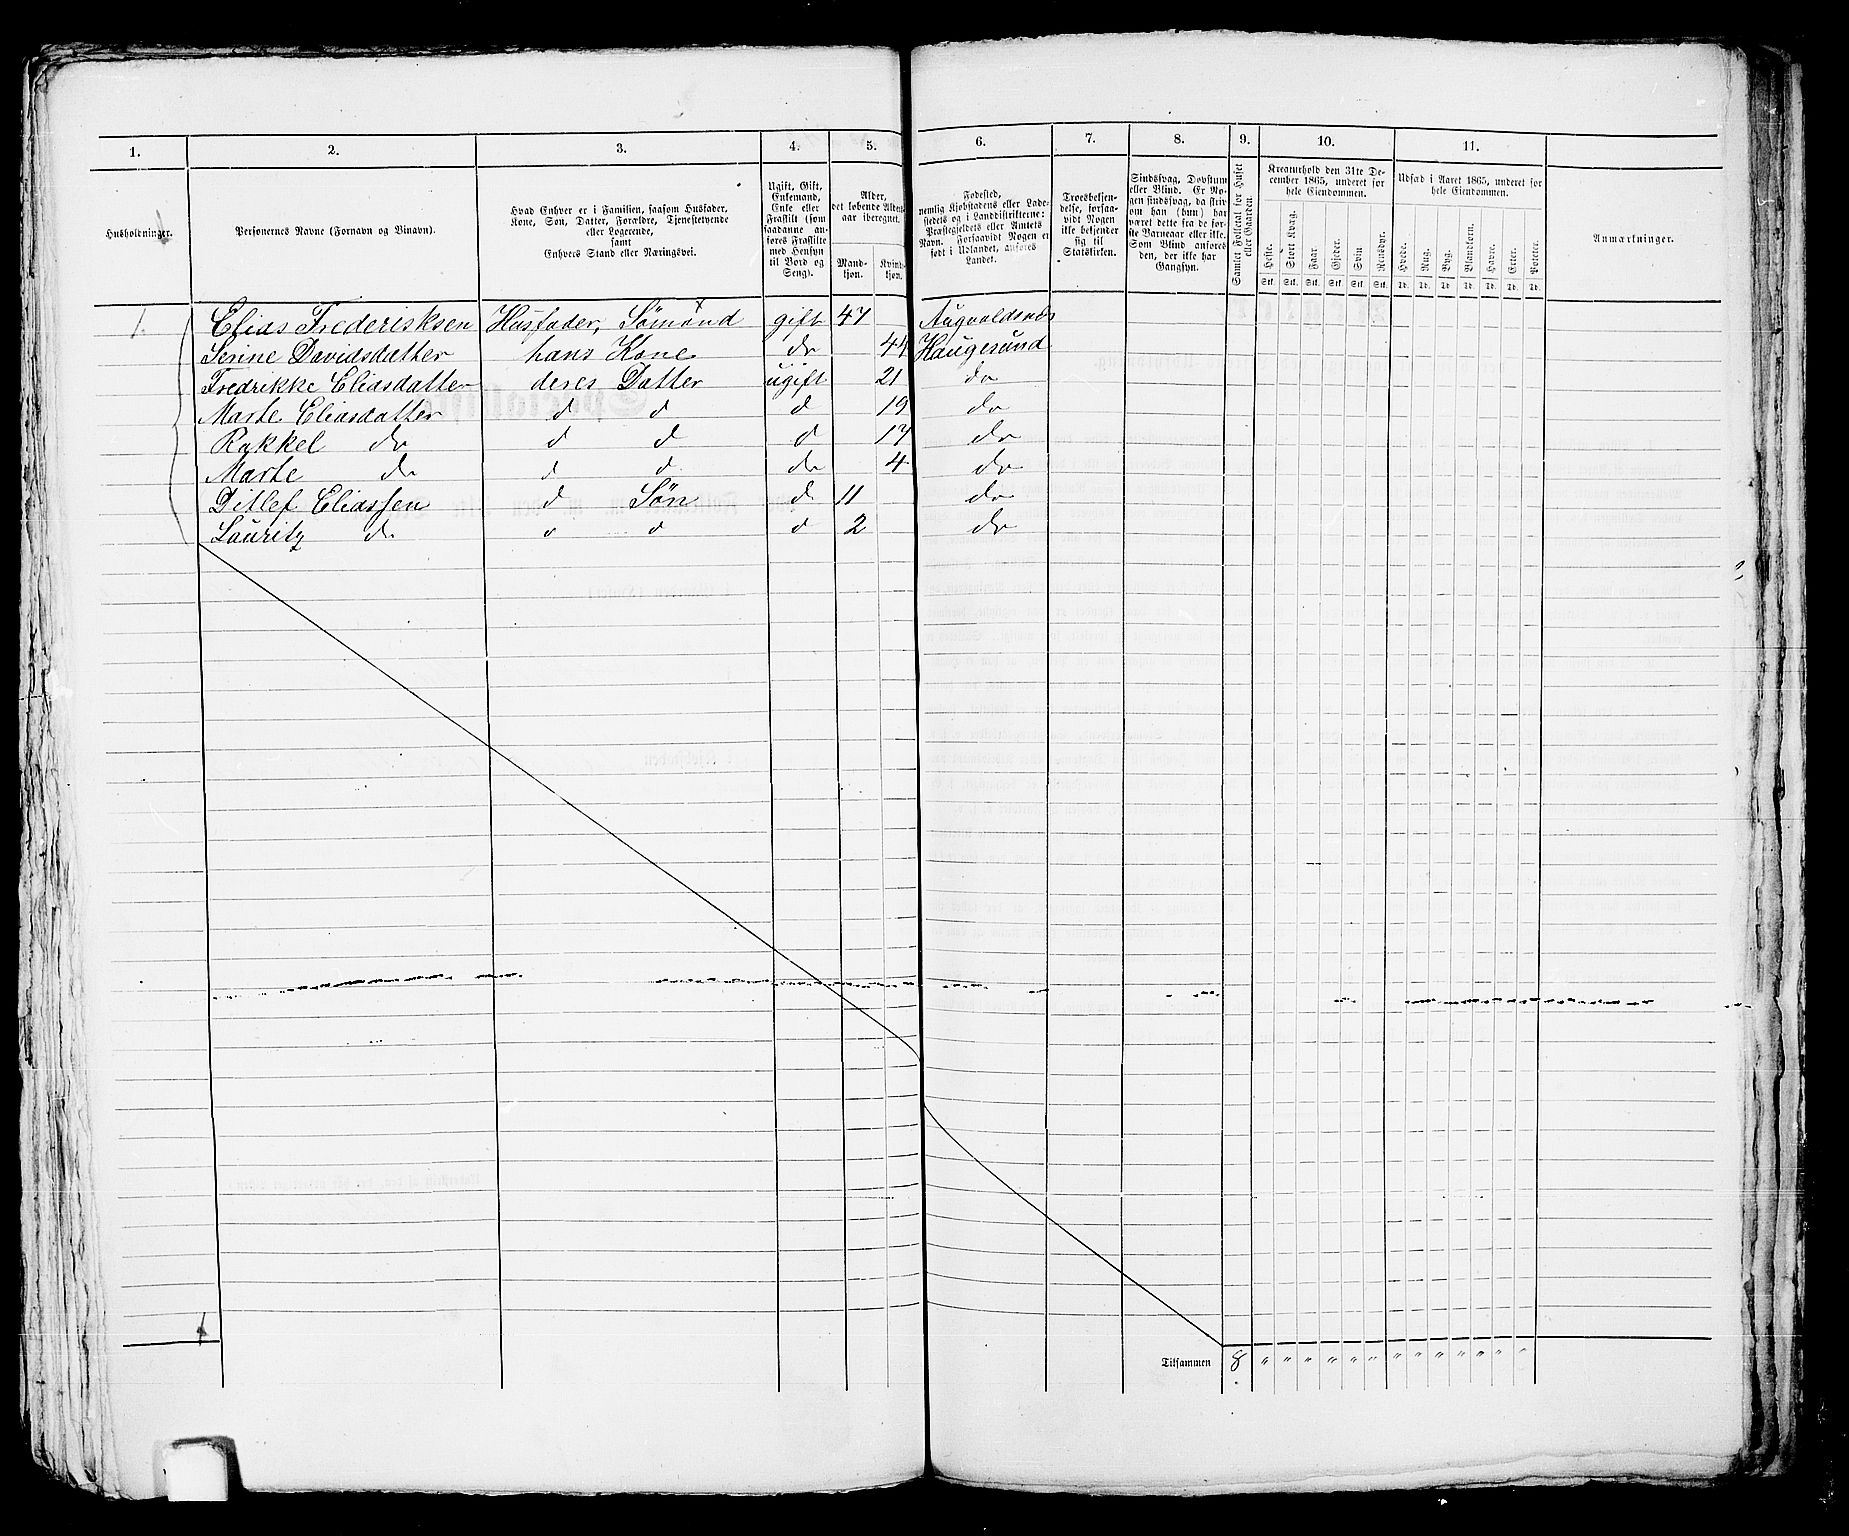 1. 2. 3. 4. 5. 6. 7. 8. 9. 10. 11.
Husholdninger.
Personernes Navne (Fornavn og Binavn).
Hvad Enhver er i Familien, saasom Husfader,
Kone, Søn, Datter, Forældre, Tjenestetyende
eller Logerende,
samt
Enhvers Stand eller Næringsvei.
Ugift, Gift,
Enkemand,
Enke eller
Fraskilt (som
saadanne an-
føres Fraskilte
med Hensyn
til Bord og
Seng).
Alder,
det løbende Alders-
aar iberegnet.
Mand-
kjøn.
Kvind-
kjøn.
Fødested,
nemlig Kjøbstadens eller Lade-
stedets og i Landdistrikterne:
Præstegjeldets eller Amtets
Navn. Forsaavidt Nogen er
født i Udlandet, anføres
Landet.
Troesbekjen-
delse, forsaa-
vidt Nogen
ikke bekjender
sig til
Statskirken.
Sindssvag, Døvstum
eller Blind. Er No-
gen sindssvag, da skriv
om han (hun) har
været dette fra de før-
ste Barneaar eller ikke.
Som Blind anføres
den, der ikke har
Gangsyn.
Samlet Folketal for Huset
eller Gaarden.
Kreaturhold den 31te De-
cember 1865, underet for
hele Eiendommen.
Heste. Stort Kvæg. Faar. Gjeder. Sviin Rensdyr.
Stk. Stk. Stk. Stk. Stk. Stk.
Udsæd i Aaret 1865, underet for
hele Eiendommen.
Hvede. Rug. Byg. Blandkorn. Havre. Erter. Poteter.
Td. Td. Td. Td. Td. Td. Td.
Anmærkninger.
1. Elias Frederisksen Husfader, Sømand gift 47 Augvaldsnæs
Serine Davidsdatter hans Kone do 44 Haugesund
Fredrikke Eliasdatter deres Datter ugift 21 do
Marte Eliasdatter d d d 19 do
Rakkel do d d d 17 do
Marte do d d do 4 do
Ditlef Eliassen d Søn d 11 do
Lauritz do d d d 2 do
1
Tilsammen 8 " " " " " " " " " " " " "